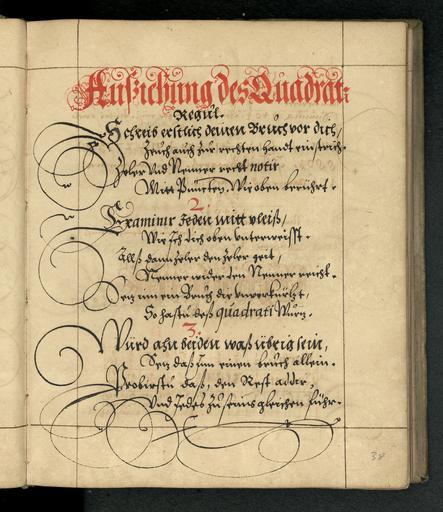 Außziehung des Quadrat:
Regul.
Schreib erstlich deinen Bruch vor dich,
Zeuch auch zur rechten handt ein strich.
Zeler vnd Nenner recht notir
Mitt Puncten, Wie oben berührt.
2.
Examinir Jeden mitt vleiß,
Wie Ich dich oben vnterweisst.
Alß dann Zeler den Zeler geit,
Nenner wider den Nenner reicht.
Setz nun ein Bruch die vnverkürtzt,
So hastu deß quadrati Wurtz.
3.
Würd aan beiden waß übrig sein,
Setz daß Inn einen bruch allein.
Probirstu daß, den Rest addir,
Vnd Jedes zu seins gleichen führ.
38